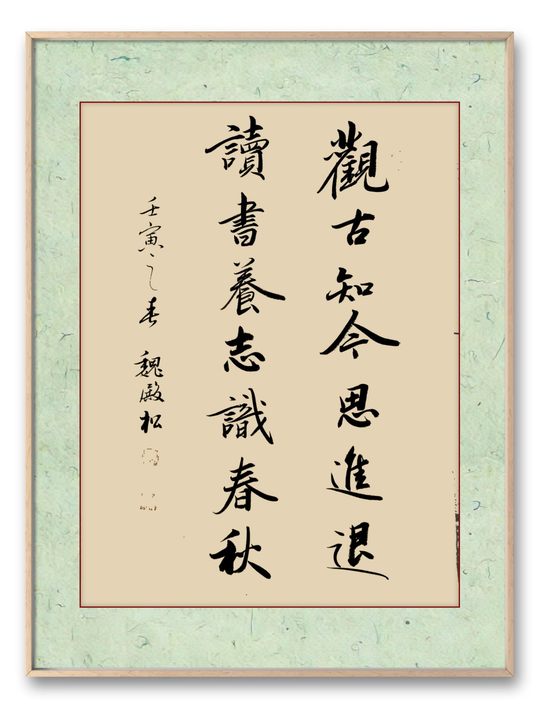 觀古知今思進退
讀書養志識春秋
壬寅之春 魏殿松